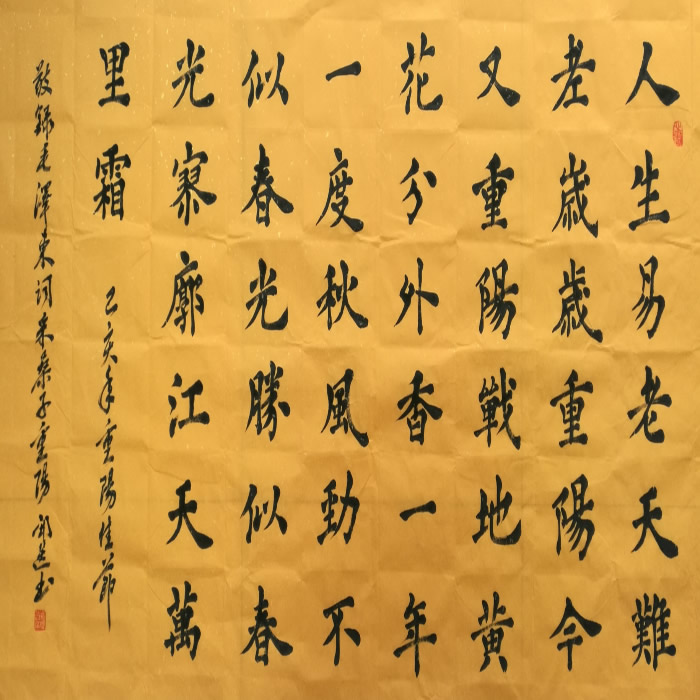 人生易老天難
老歲歲重陽今
又重陽戰地黄
花分外香一年
一度秋風勁不
似春光勝似春
光寥廓江天萬
里霜 己亥年重陽佳節
敬錄毛澤東词采桑子重陽 郭书